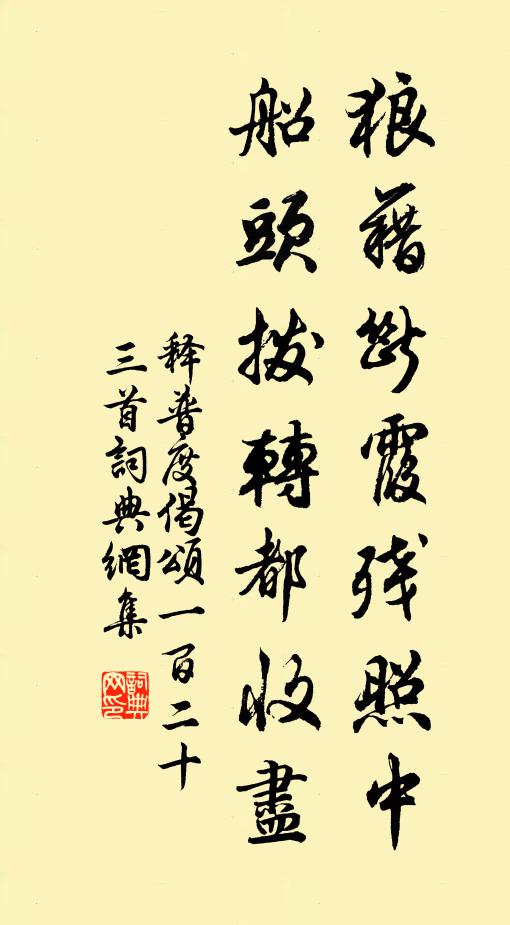 狼藉斷霞残照中
船頭拨轉都收盡
释普度偈頌一百二十
三首詞典網集
詞典網印